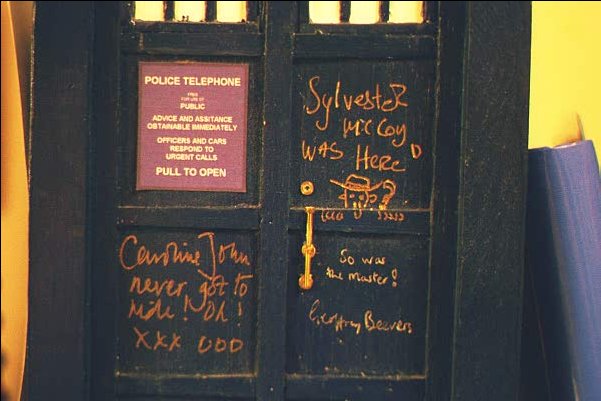 POLICE TELEPHONE
FREE
FOR USE OF
PUBLIC
ADVICE AND ASSITANCE
OBTAINABLE IMMEDIATELY
OFFICERS AND CARS
RESPOND TO
URGENT CALLS
PULL TO OPEN
Sylvester
McCoy
WAS HERE
Caroline John
never got to
ride! Oh!
xxx ooo
So was
the Master!
Geoffrey Beevers